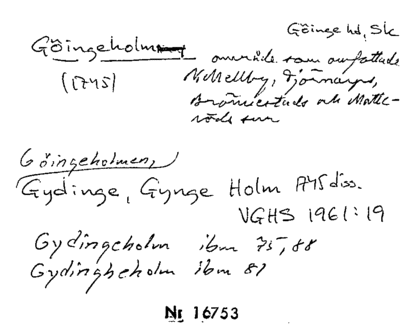 Göinge hd, Sk
Göingeholm
(1745)
område som omfattade
N Mellby, Tjörnarps,
Brönnestads och Matte-
röds snr
Göingeholmen,
Gydinge, Gynge Holm 1745 diss.
VGHS 1961:19
Gydingeholm ibm 75, 88
Gydingheholm ibm 81
Nr 16753